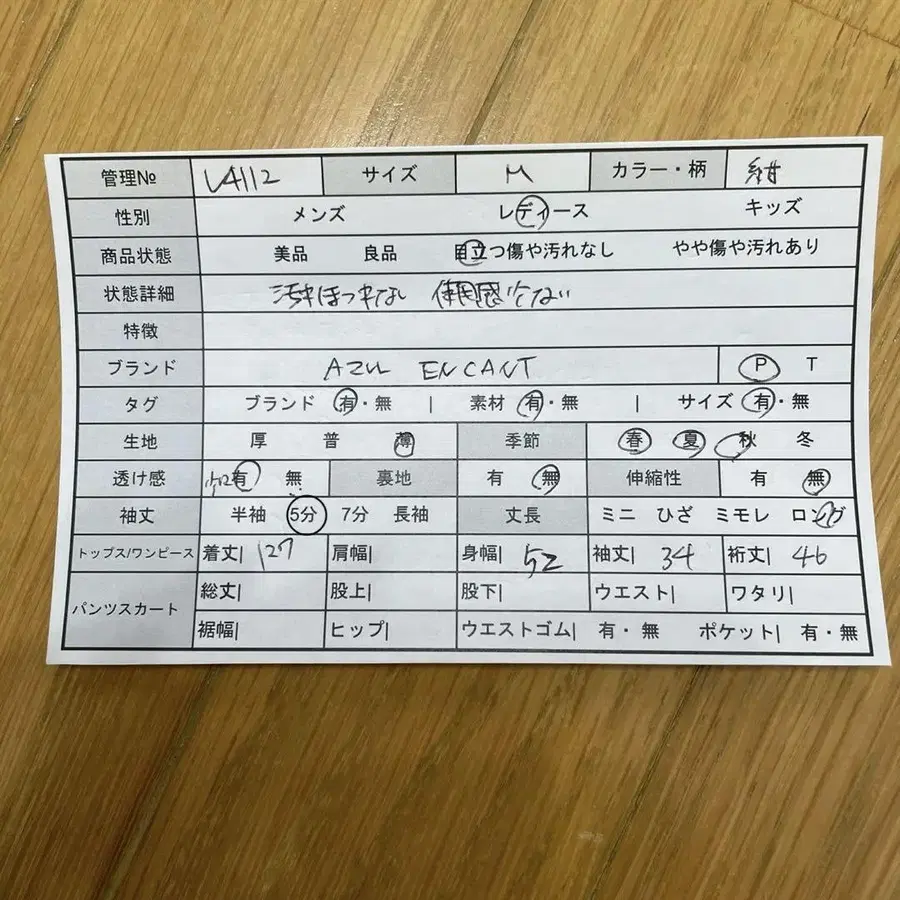 管理№ V4112 サイズ M カラー・柄 紺
性別 メンズ レディース キッズ
商品状態 美品 良品 目立つ傷や汚れなし やや傷や汚れあり
状態詳細 汚れほつれなし 使用感少ない
特徴
ブランド AZUL ENCANT P T
タグ ブランド 有・無 | 素材 有・無 | サイズ 有・無
生地 厚 普 薄 季節 春 夏 秋 冬
透け感 有 無 裏地 有 無 伸縮性 有 無
袖丈 半袖 5分 7分 長袖 丈長 ミニ ひざ ミモレ ロング
トップス/ワンピース 着丈| 127 肩幅| 身幅| 52 袖丈| 34 裄丈| 46
パンツスカート 総丈| 股上| 股下| ウエスト| ワタリ|
裾幅| ヒップ| ウエストゴム| 有・無 ポケット| 有・無